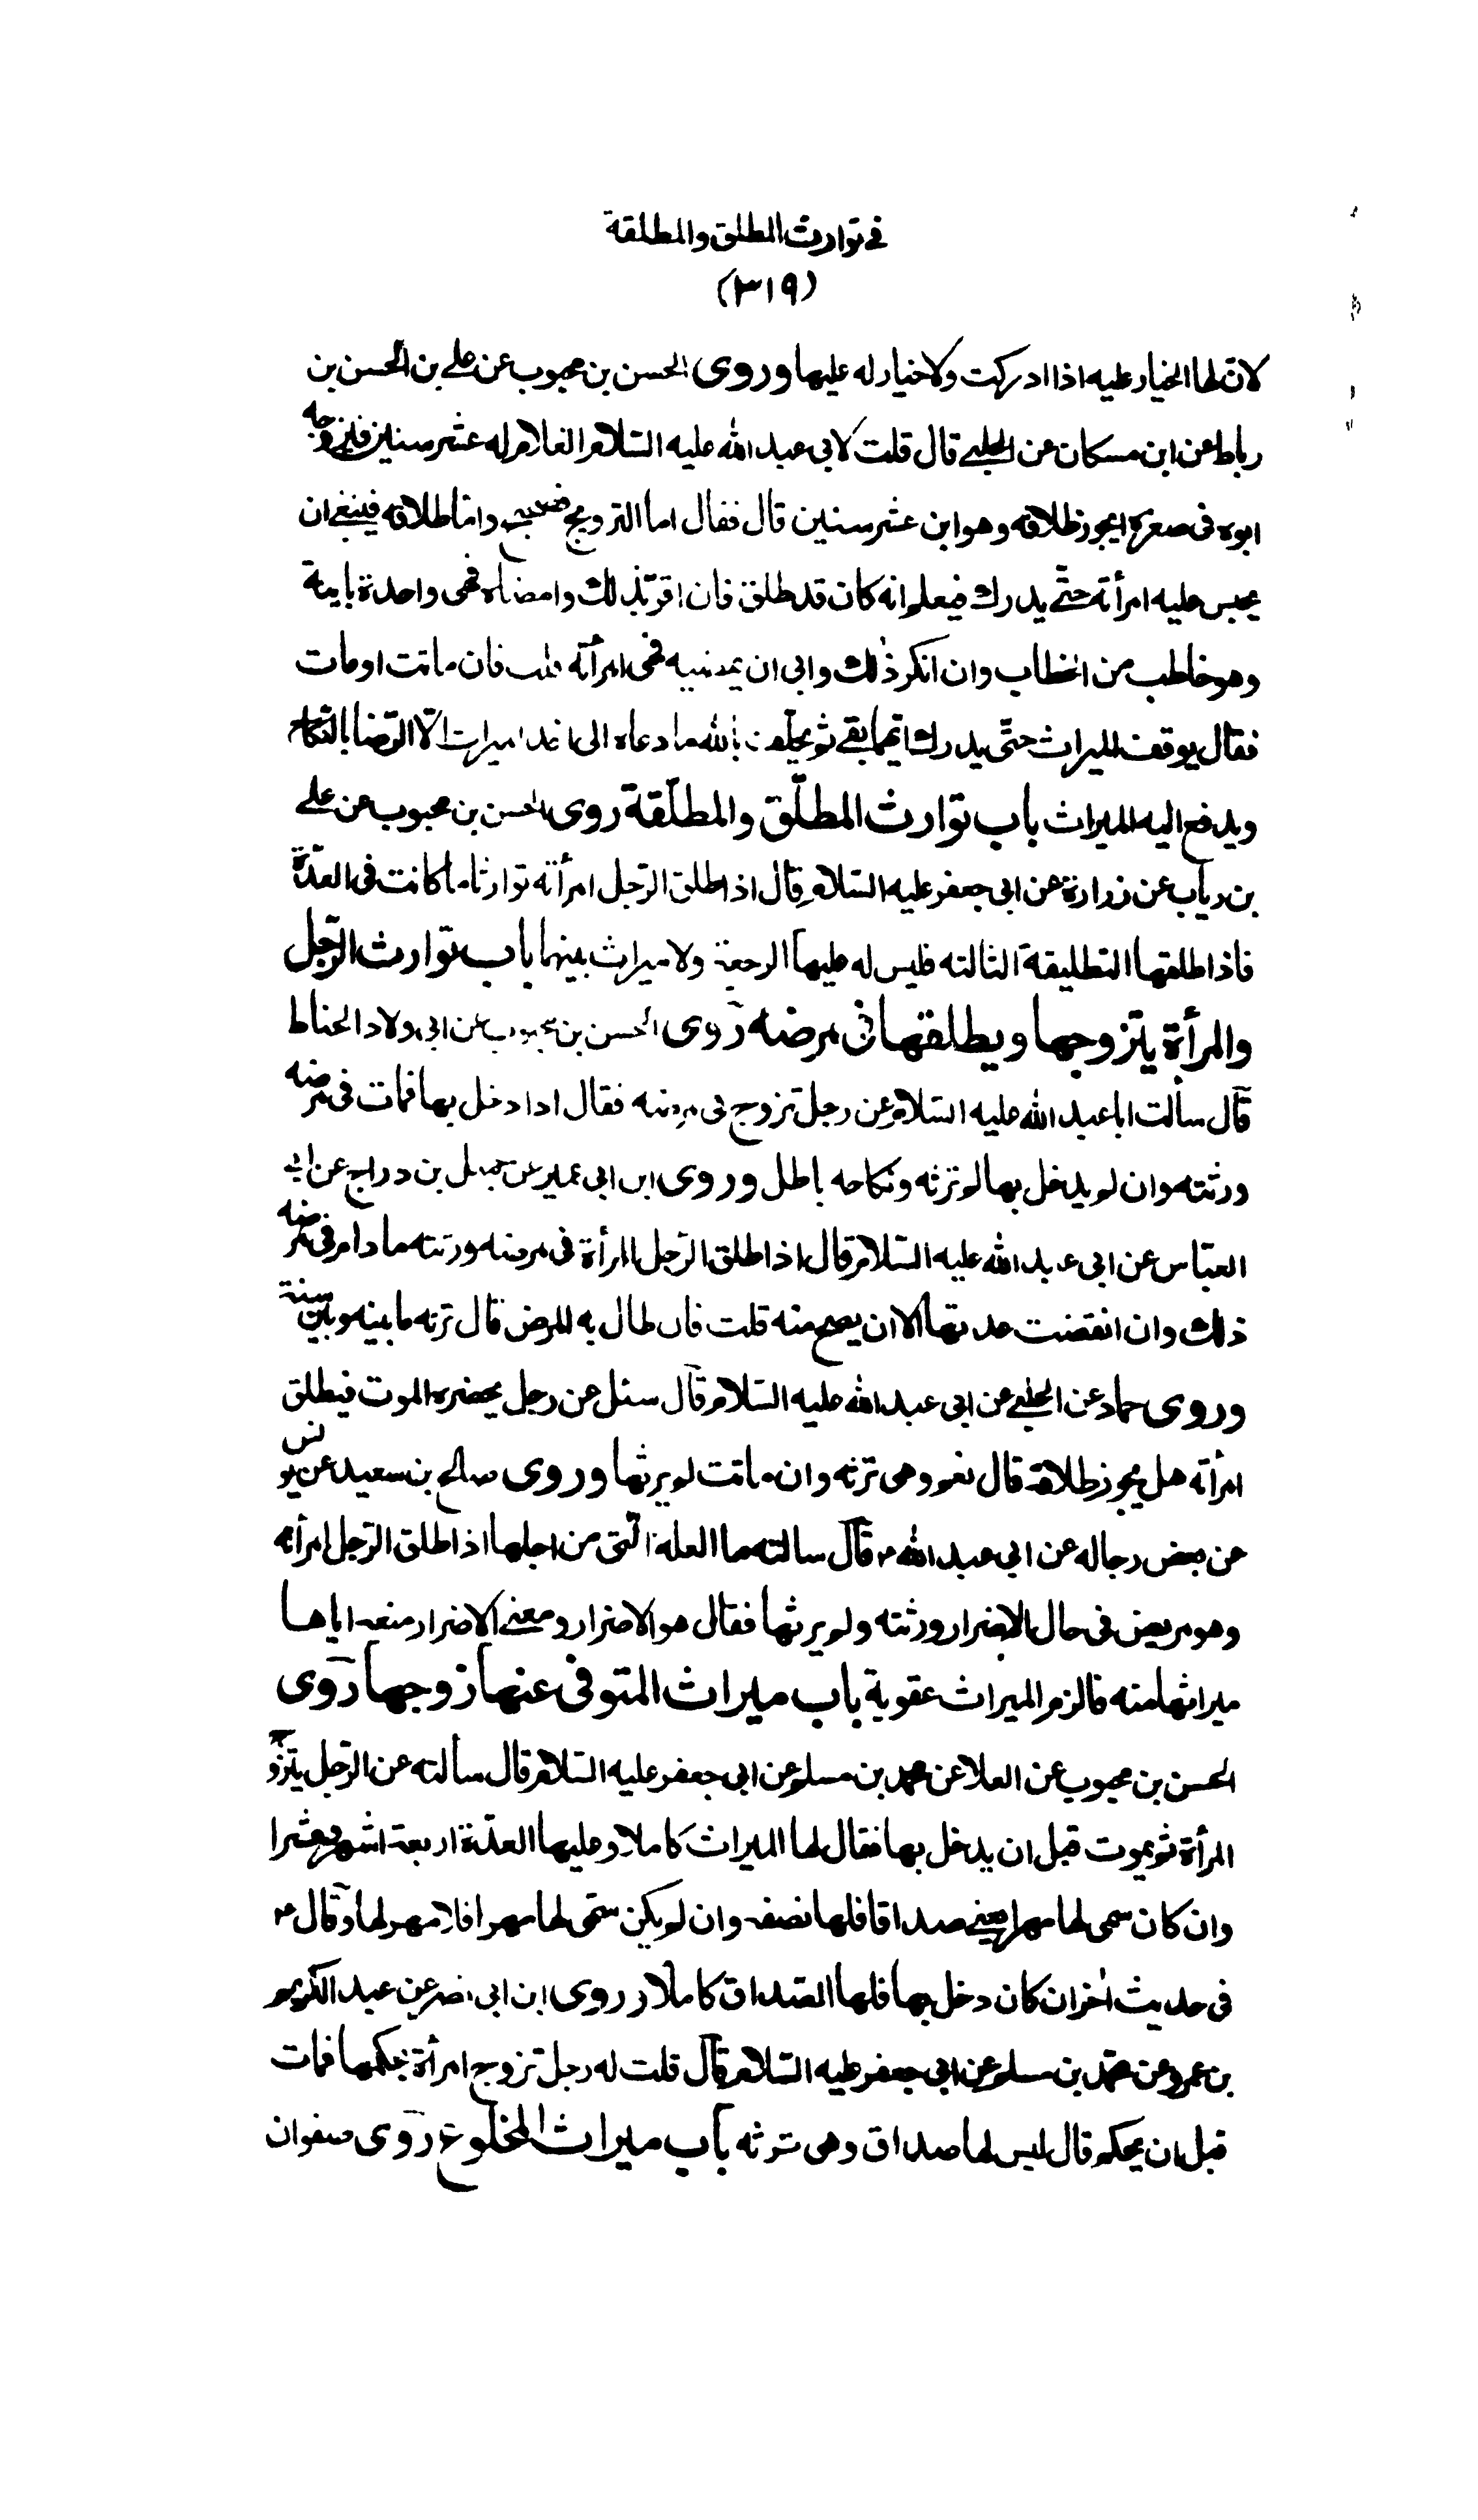 في توارث المطلق والمطلقة
(٣١٩)
لان لها الخيار عليه اذا ادركت ولا خيار له عليها وروى الحسن بن محبوب عن علي بن الحسن بن
رباط عن ابن مسكان عن الحلبي قال قلت لابي عبد الله عليه السّلام الغلام له عشر سنين فيزوجه
ابوه في صغره ايجوز طلاقه وهو ابن عشر سنين قال فقال اما التزويج فصحيح واما طلاقه فينبغي ان
يحبس عليه امرأته حتّى يدرك فيعلم انه كان قد طلق فان اقر بذلك وامضاه فهي واحدة باينة
وهو خاطب من الخطاب وان انكر ذلك وابى ان يمضيه فهي امرأته قلت فان ماتت او مات
فقال يوقف الميراث حتّى يدرك ايّهما بقي ثم يحلف بالله ما دعاه الى اخذ الميراث الّا الرّضا بالنّكاح
ويدفع اليه الميراث باب توارث المطلّق والمطلّقة روى الحسن بن محبوب عن علي
بن رياب عن زرارة عن ابي جعفر عليه السّلام قال اذا طلق الرّجل امرأته توارثا ما كانت في العدّة
فاذا طلقها التطليقة الثالثه فليس له عليها الرجعة ولا ميراث بينهما باب توارث الرّجل
والمرأة يتزوجها ويطلقها في مرضه روى الحسن بن محبوب عن ابي ولاد الحناط
قال سألت ابا عبد الله عليه السّلام عن رجل تزوج في مرضه فقال اذا دخل بها فمات في مرضه
ورثته وان لم يدخل بها لم ترثه ونكاحه باطل وروى ابن ابي عمير عن جميل بن دراج عن ابي
العبّاس عن ابي عبد الله عليه السّلام قال اذا طلق الرّجل المرأة في مرضه ورثته ما دام في مرضه
ذلك وان انقضت عدتها الا ان يصح منه قلت فان طال به المرض قال ترثه ما بينه وبين سنة
وروى حماد عن الحلبي عن ابي عبد الله عليه السّلام قال سئل عن رجل يحضره الموت فيطلق
امرأته هل يجوز طلاقه قال نعم وهي ترثه وان ماتت لم يرثها وروى صالح بن سعيد عن يونس
عن بعض رجاله عن ابي عبد الله ع قال سالته ما العلة الّتي من اجلها اذا طلق الرّجل امرأته
وهو مريض في حال الاضرار ورثته ولم يرثها فقال هو الاضرار ومعنى الاضرار منعه اياها
ميراثها منه فالزم الميراث عقوبة باب ميراث المتوفى عنها زوجها روى
الحسن بن محبوب عن العلا عن محمد بن مسلم عن ابي جعفر عليه السّلام قال سألته عن الرّجل يتزوج
المرأة ثم يموت قبل ان يدخل بها فقال لها الميراث كاملا وعليها العدّة اربعة اشهر وعشرا
وان كان سمى لها مهرا يعني صداقا فلها نصفه وان لم يكن سمّى لها مهرا فلا مهر لها وقال ع
في حديث اخر ان كان دخل بها فلها الصّداق كاملا وروى ابن ابي نصر عن عبد الكريم
بن عمرو عن محمّد بن مسلم عن ابي جعفر عليه السّلام قال قلت له رجل تزوج امرأة بحكمها فمات
قبل ان يحكم قال ليس لها صداق وهي ترثه باب ميراث المخلوع روى صفوان